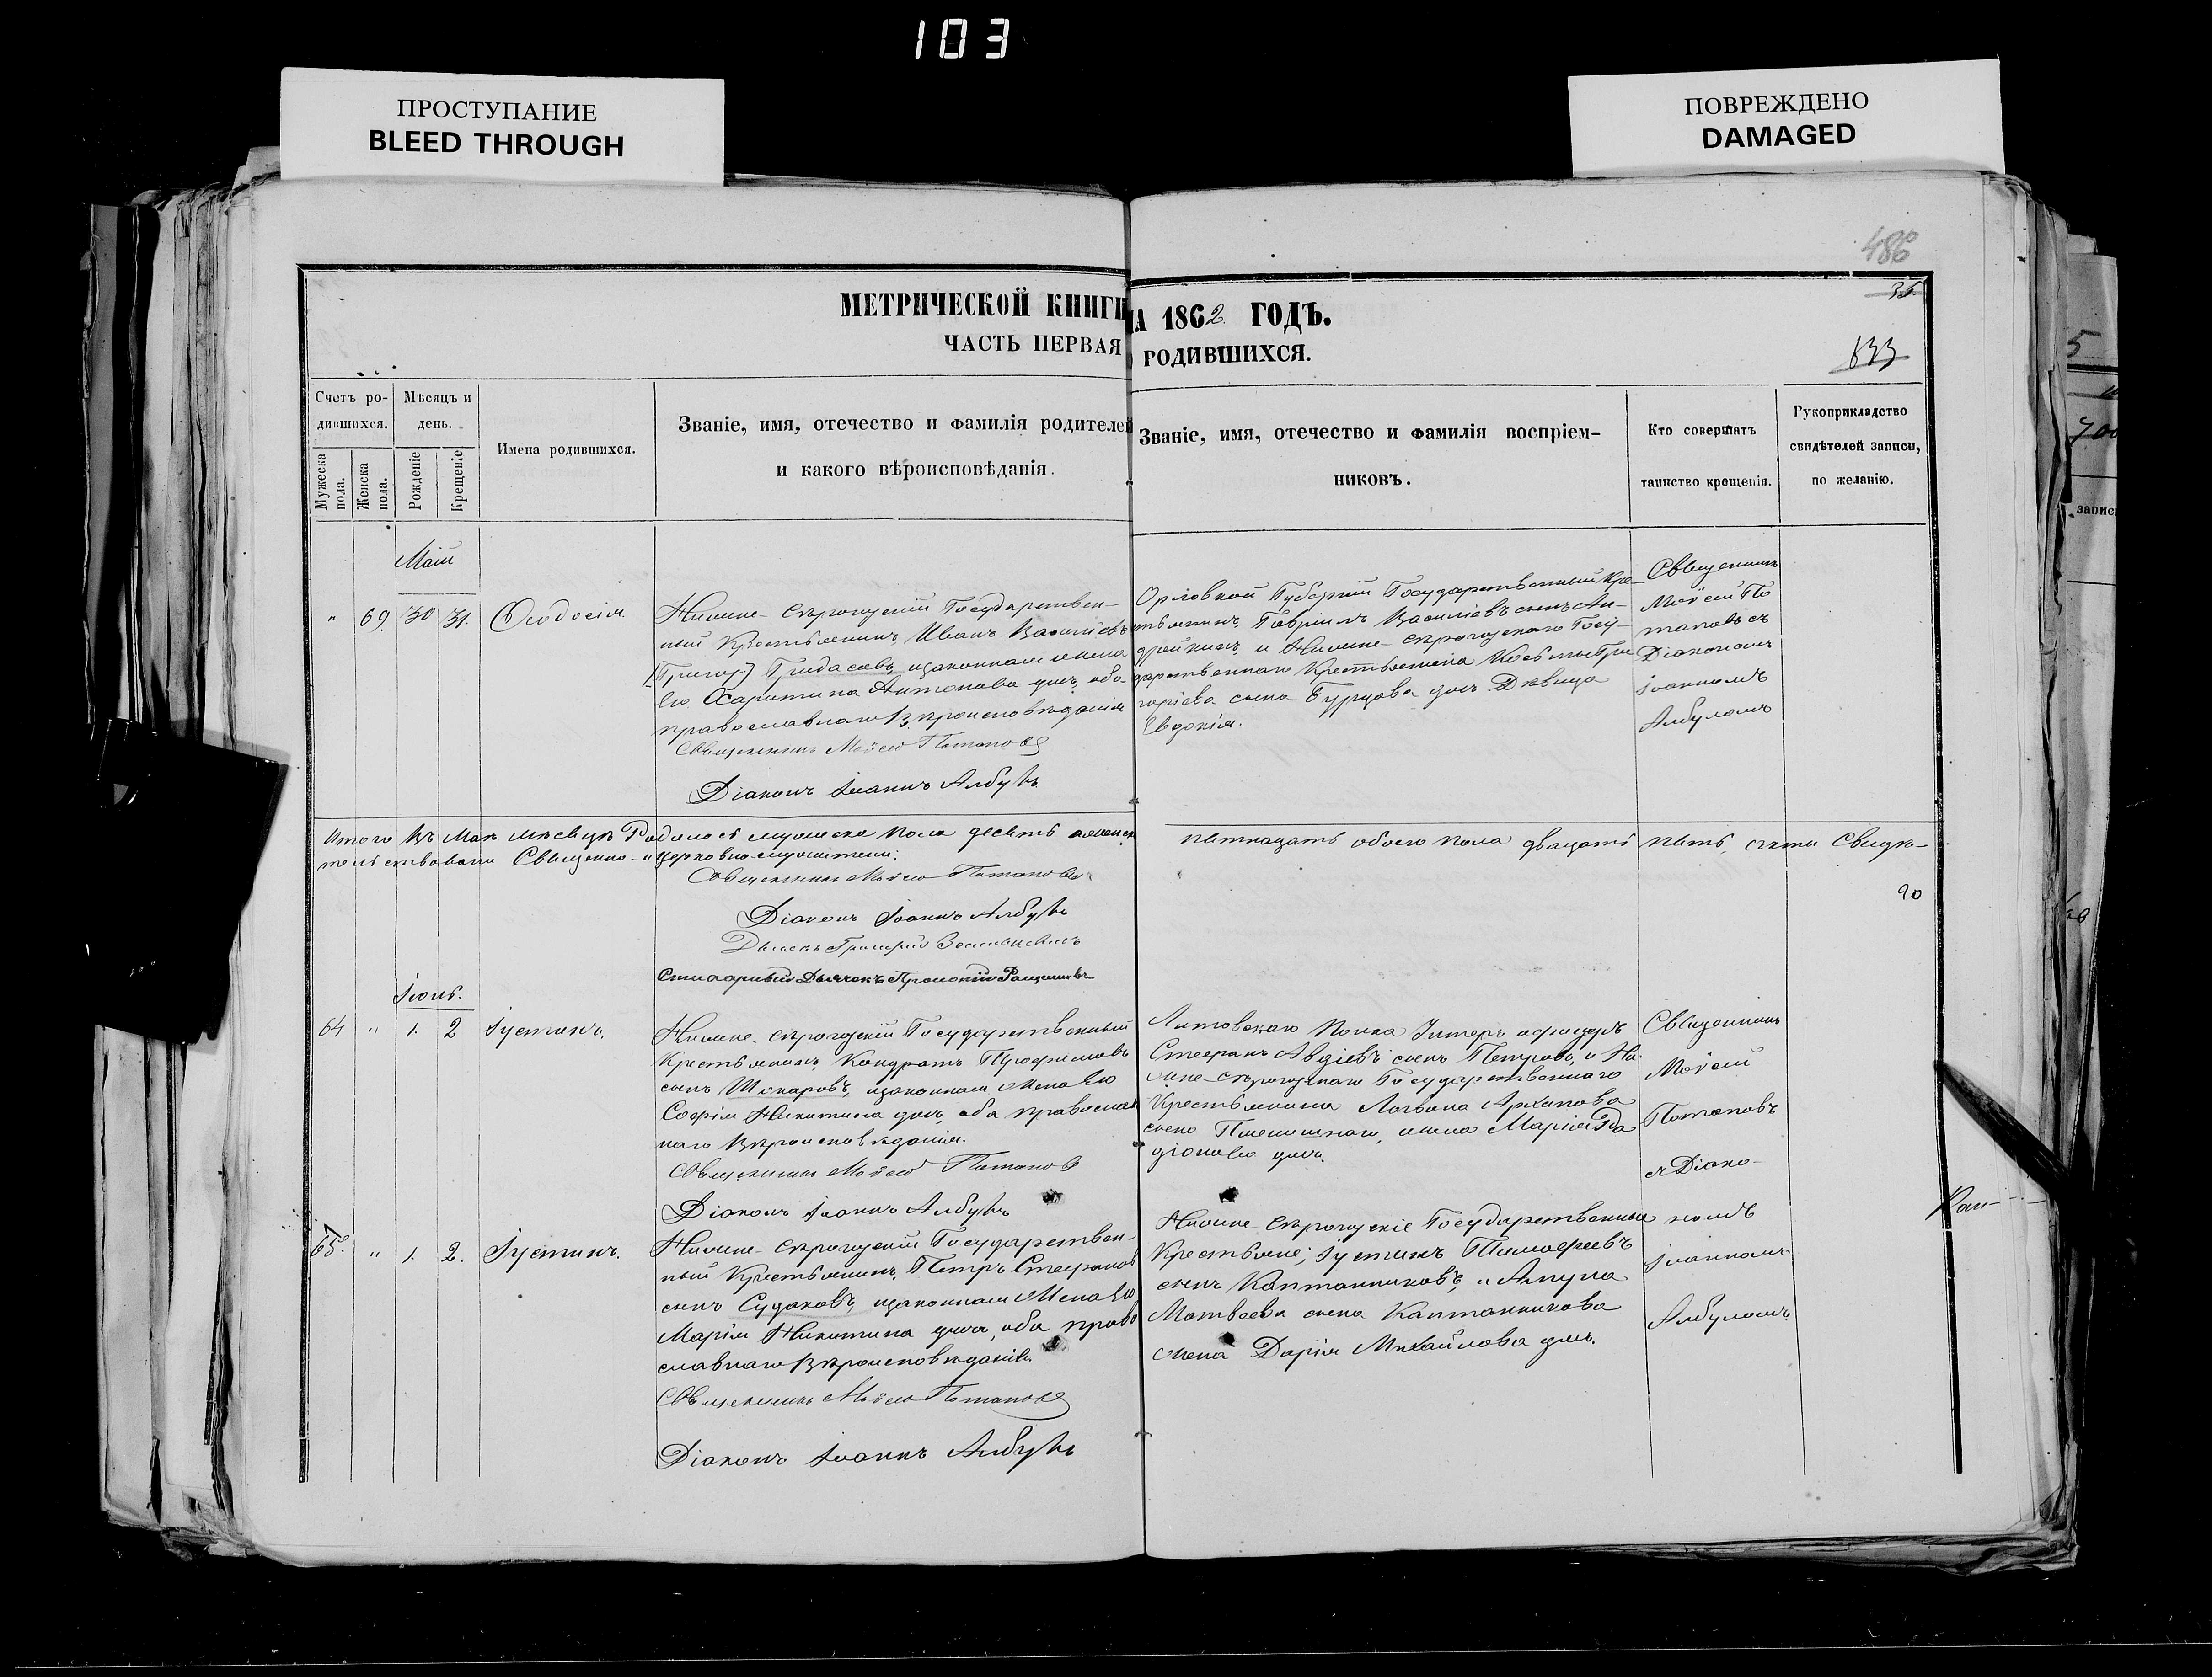 103
ПРОСТУПАНИЕ
BLEED THROUGH
ПОВРЕЖДЕНО
DAMAGED
486
35.
633
МЕТРИЧЕСКОЙ КНИГИ
НА 1862 ГОДЪ.
ЧАСТЬ ПЕРВАЯ
О РОДИВШИХСЯ.
Счетъ ро-
дившихся.
Мужеска пола.
Женска пола.
Мѣсяцъ и
день.
Рожденіе
Крещеніе
Имена родившихся.
Званіе, имя, отечество и фамилія родителей
и какого вѣроисповѣданія.
Званіе, имя, отечество и фамилія воспріем-
никовъ.
Кто совершатъ
таинство крещенія.
Рукоприкладство
свидѣтелей записи,
по желанію.
Маій
" 69. 30 31. Ѳеодосія
Нижне-сѣрогозскій Государствен-
ный Крестьянинъ Иванъ Василіевъ
[Григор.] Гридасовъ, изаконная жена
его Харитина Антонова доч, оба-
православнаго Вѣроисповѣданія
Священникъ Моѵсей Потаповъ
Діаконъ Іоаннъ Албулъ
Орловской Губерніи Государственный Кре-
стьянинъ Гавріилъ Василіевъ сынъ Ан-
дрейкинъ, и Нижне-сѣрогозскаго Госу-
дарственнаго Крестьянина Космы Гри
горіева сына Бурцова доч Дѣвица
Евдокія.
Священникъ
Моѵсей По
таповъ съ
Діакономъ
Іоанномъ
Албуломъ
Итого Въ Маѣ мѣсяцѣ Родилось мужеска пола десять женска
пятнацать обоего пола двацать пять, счетъ Свидѣ-
тельствовали Священно-и церковно-служители:
Священникъ Моѵсей Потаповъ
Діаконъ Іоаннъ Албулъ
Дьячекъ Григорій
90
Іюнь.
64 " 1. 2 Іустинъ.
Нижне-сѣрогозскій Государственный
Крестьянинъ, Кондратъ Трофимовъ
сынъ Шкаровъ, изаконная жена Его
Софія Никитина доч, оба православ
наго Вѣроисповѣданія.
Священникъ Моѵсей Потаповъ
Діаконъ Іоаннъ Албулъ
Литовскаго полка Унтеръ офицеръ
Стефанъ Авдіевъ сынъ Петровъ, и Ни
жне-сѣрогозскаго Государственнаго
Крестьянина Логвина Архипова
сына Пшенишнаго, жена Марія Ра
діонова доч.
Священникъ
Моѵсей
Потаповъ
съ Діако-
номъ
Іоанномъ
Албуломъ.
65. " 1. 2. Іустинъ.
Нижне-сѣрогозскій Государствен-
ный Крестьянинъ, Петръ Стефановъ
сынъ Судаковъ, изаконная Жена Его
Марія Никитина доч, оба право
славнаго Вѣроисповѣданія
Священникъ Моѵсей Потаповъ
Діаконъ Іоаннъ Албулъ
Нижне сѣрогозскіе Государственные
Крестьяне; Іустинъ Тимофеевъ
сынъ Каптанниковъ, и
Матвеева сына Каптанникова
жена Дарія Михайлова доч.